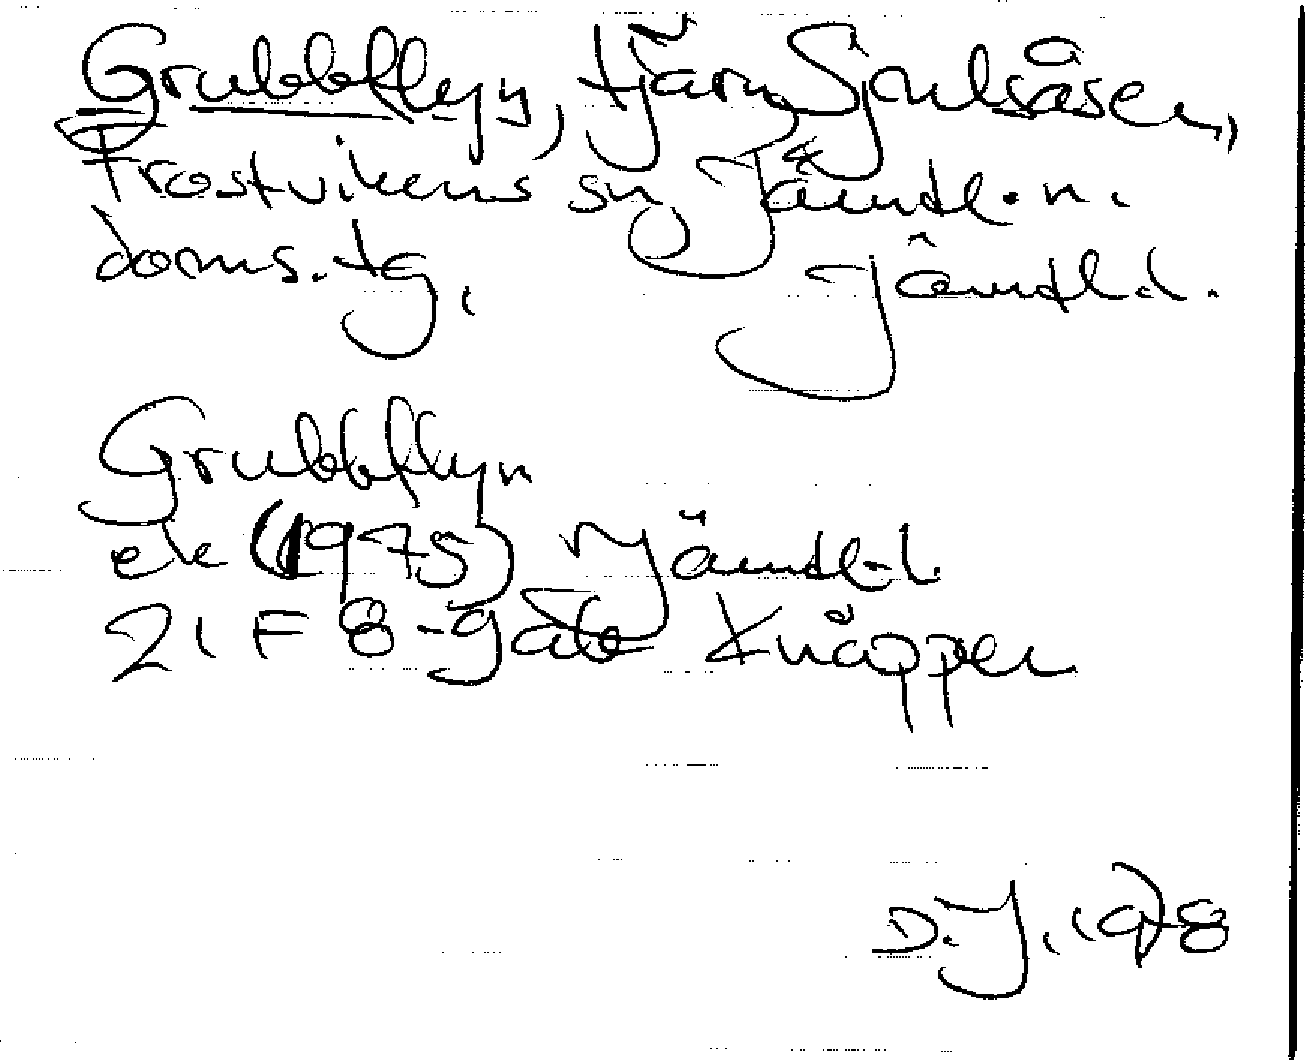 Grubbflyn, tjärn, Sjulsåsen,
Frostvikens sn, Jämtl. n.
doms. tg, Jämtl.l.
Grubbflyn
ek (1975) Jämtl.l.
21 F 8-9 a b Knäppen
D.J. 1978